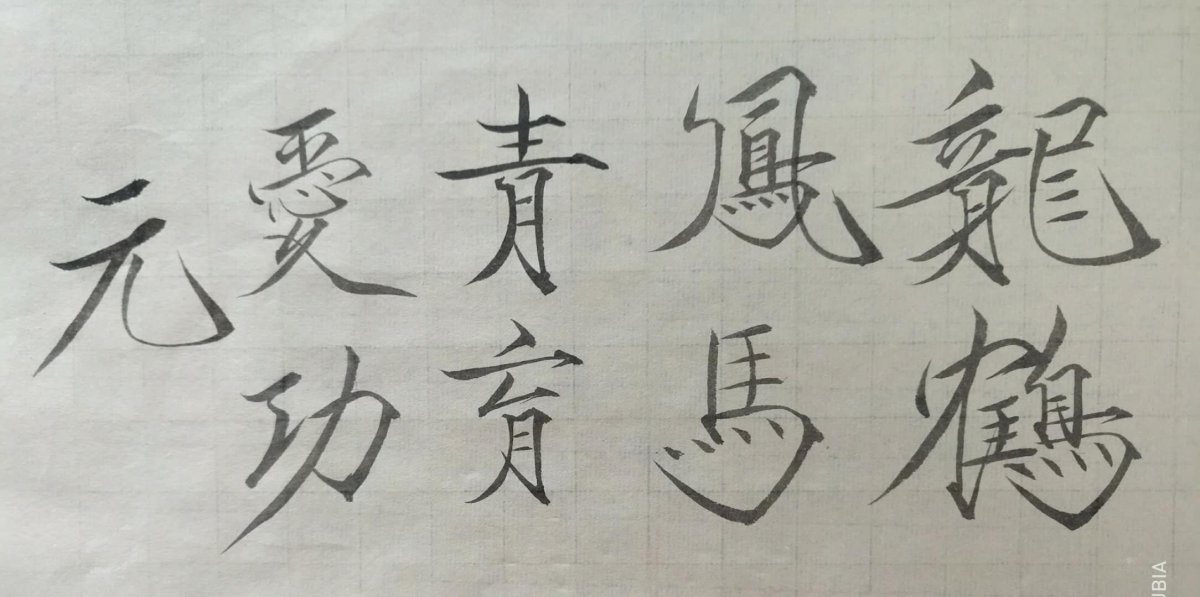 龍鶴
鳳馬
青育
愛功
元
UBIA